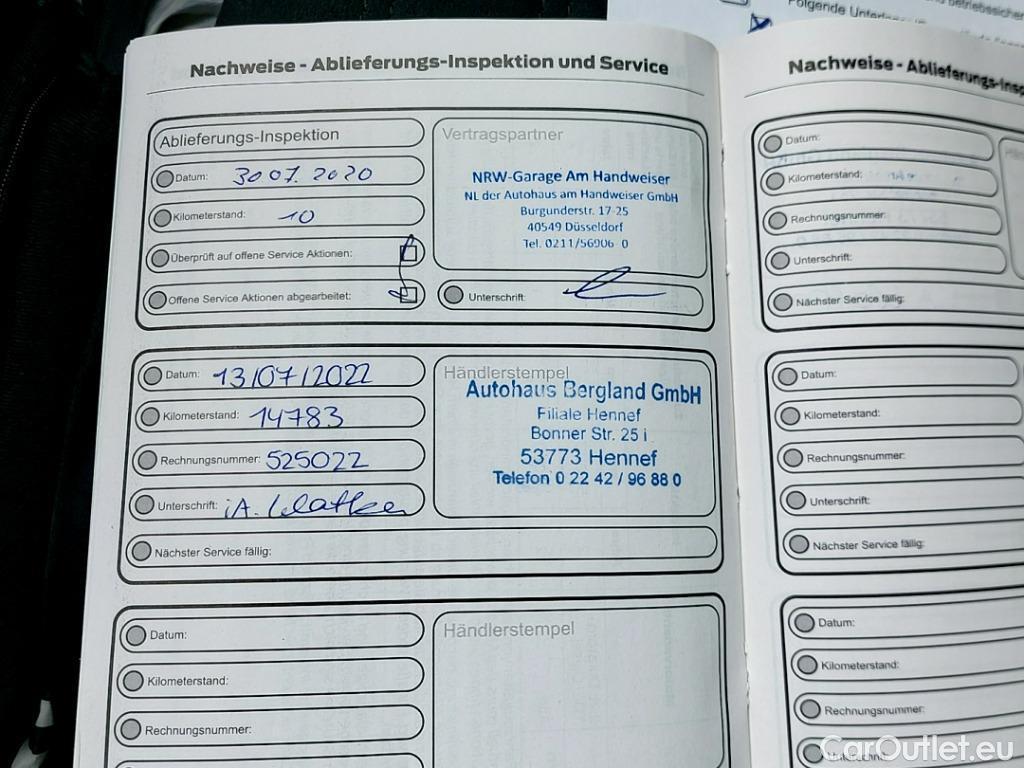 Folgende
Nachweise - Ablieferungs-Inspektion und Service
Ablieferungs-Inspektion
Datum: 30 07. 2020
Kilometerstand: 10
Überprüft auf offene Service Aktionen:
Offene Service Aktionen abgearbeitet:
Vertragspartner
NRW-Garage Am Handweiser
NL der Autohaus am Handweiser GmbH
Burgunderstr. 17-25
40549 Düsseldorf
Tel. 0211/56906 0
Unterschrift:
Datum: 13/07/2022
Kilometerstand: 14783
Rechnungsnummer: 525022
Unterschrift: i.A.
Nächster Service fällig:
Händlerstempel
Autohaus Bergland GmbH
Filiale Hennef
Bonner Str. 25 i
53773 Hennef
Telefon 0 22 42 / 96 88 0
Datum:
Kilometerstand:
Rechnungsnummer:
Händlerstempel
Nachweise - Ablieferungs-Insp
Datum:
Kilometerstand:
Rechnungsnummer:
Unterschrift:
Nächster Service fällig:
Datum:
Kilometerstand:
Rechnungsnummer:
Unterschrift:
Nächster Service fällig:
Datum:
Kilometerstand:
Rechnungsnummer:
CarOutlet.eu